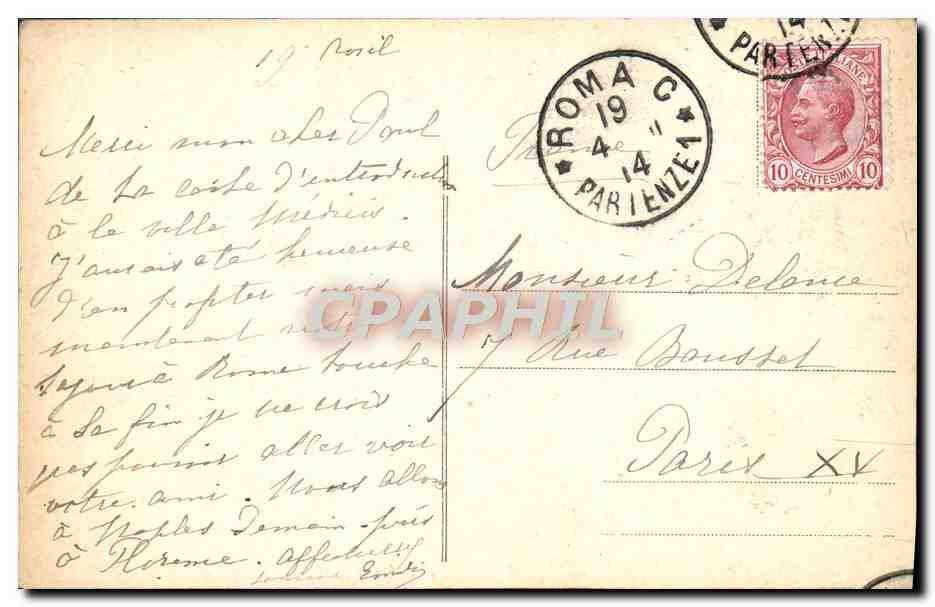 19
Merci mon cher Paul
de ta carte d'introduction
à la ville Médicis.
J'aurais été heureuse
d'en profiter mais
maintenant notre
séjour à Rome touche
à sa fin je ne crois
pas pouvoir aller voir
votre ami. Nous allons
à Naples Demain puis
à Florence.
France
ROMA C
19
4 14
PARTENZE 1
14
PARTENZE 1
10 CENTESIMI 10
Monsieur Delance
7 Rue Bausset
Paris XV
CPAPHIL